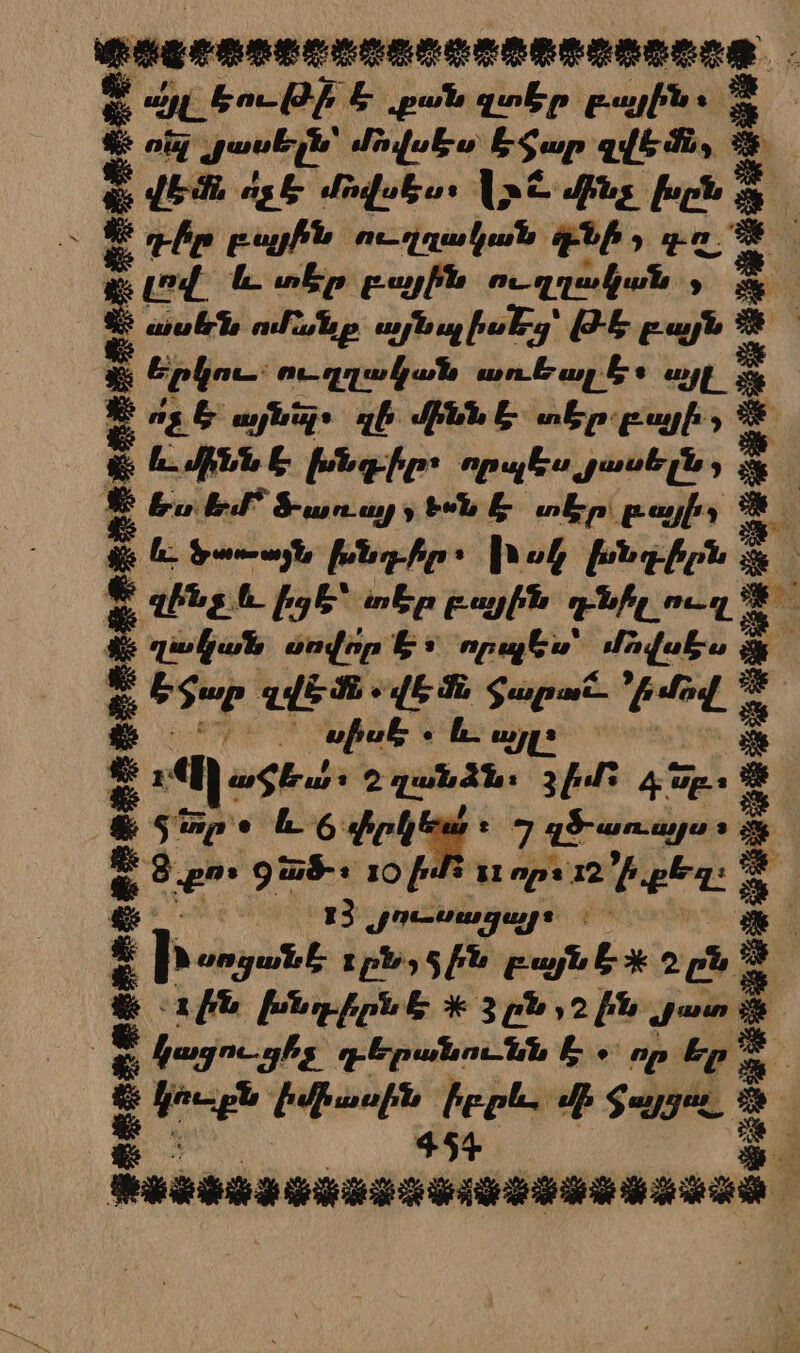 այլ էուԹի է քան զտէր բային։
ոպ յասելն՝ մովսէս եհար զվէմն,
վէմն ոչէ մովսէս։ մինչ խըն
դիր բային ուղղական դնի, գո
լով և տէր բային ուղղական,
ասեն ոմանք այնպիսեց՝ Թէ բայն
երկու ուղղական առեալ է։ այլ
ոչ է այնպ։ զի մինն է տէր բայի,
և մինն է խնդիր։ որպէս յասելն,
ես եմ ծառայ, եսն է տէր բայի,
և ծառայն խնդիր։ Իսկ խնդիրն
զինչ և իցէ՝ տէր բային դնիլ ուղ
ղական սովոր է։ որպէս՝ մովսէս
եհար զվէմն. վէմն հարաւ ՚ի մով
սիսէ. և այլ։
1 Պահեա։ 2 զանձն։ 3 իմ։ 4 տր։
5 տր. և 6 փրկեա։ 7 զծառայս։
8 քո։ 9 ած։ 10 իմ։ 11 որ։ 12 ՚ի քեզ։
13 յուսացայ։
Ի սոցանէ 1 ըն, 5 ին բայն է * 2 րն
1 ին խնդիրն է * 3 րն, 2 ին յատ
կացուցիչ դերանունն է. որ եր
կուքն իմիասին իբրև մի հայցա
454